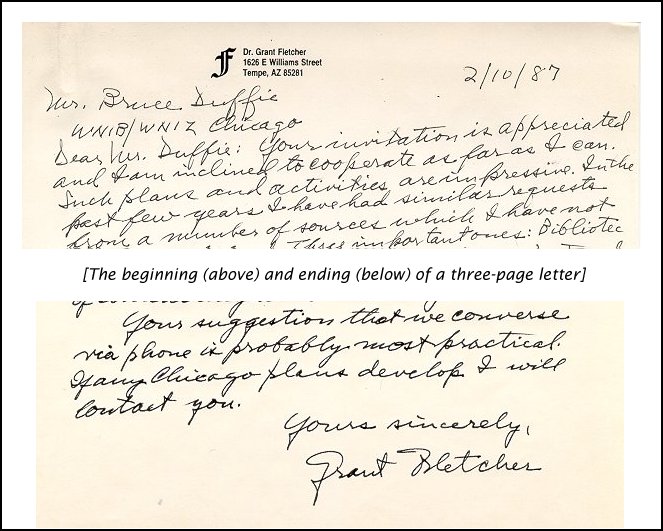 F
Dr. Grant Fletcher
1626 E Williams Street
Tempe, AZ 85281
2/10/87
Mr. Bruce Duffie
WNIB/WNIZ Chicago
Dear Mr. Duffie: Your invitation is appreciated
and I am inclined to cooperate as far as I can.
Such plans and activities are impressive. In the
past few years I have had similar requests
from a number of sources which I have not
Three important ones: Bibliotec
[The beginning (above) and ending (below) of a three-page letter]
Your suggestion that we converse
via phone is probably most practical.
If any Chicago plans develop I will
contact you.
Yours sincerely,
Grant Fletcher